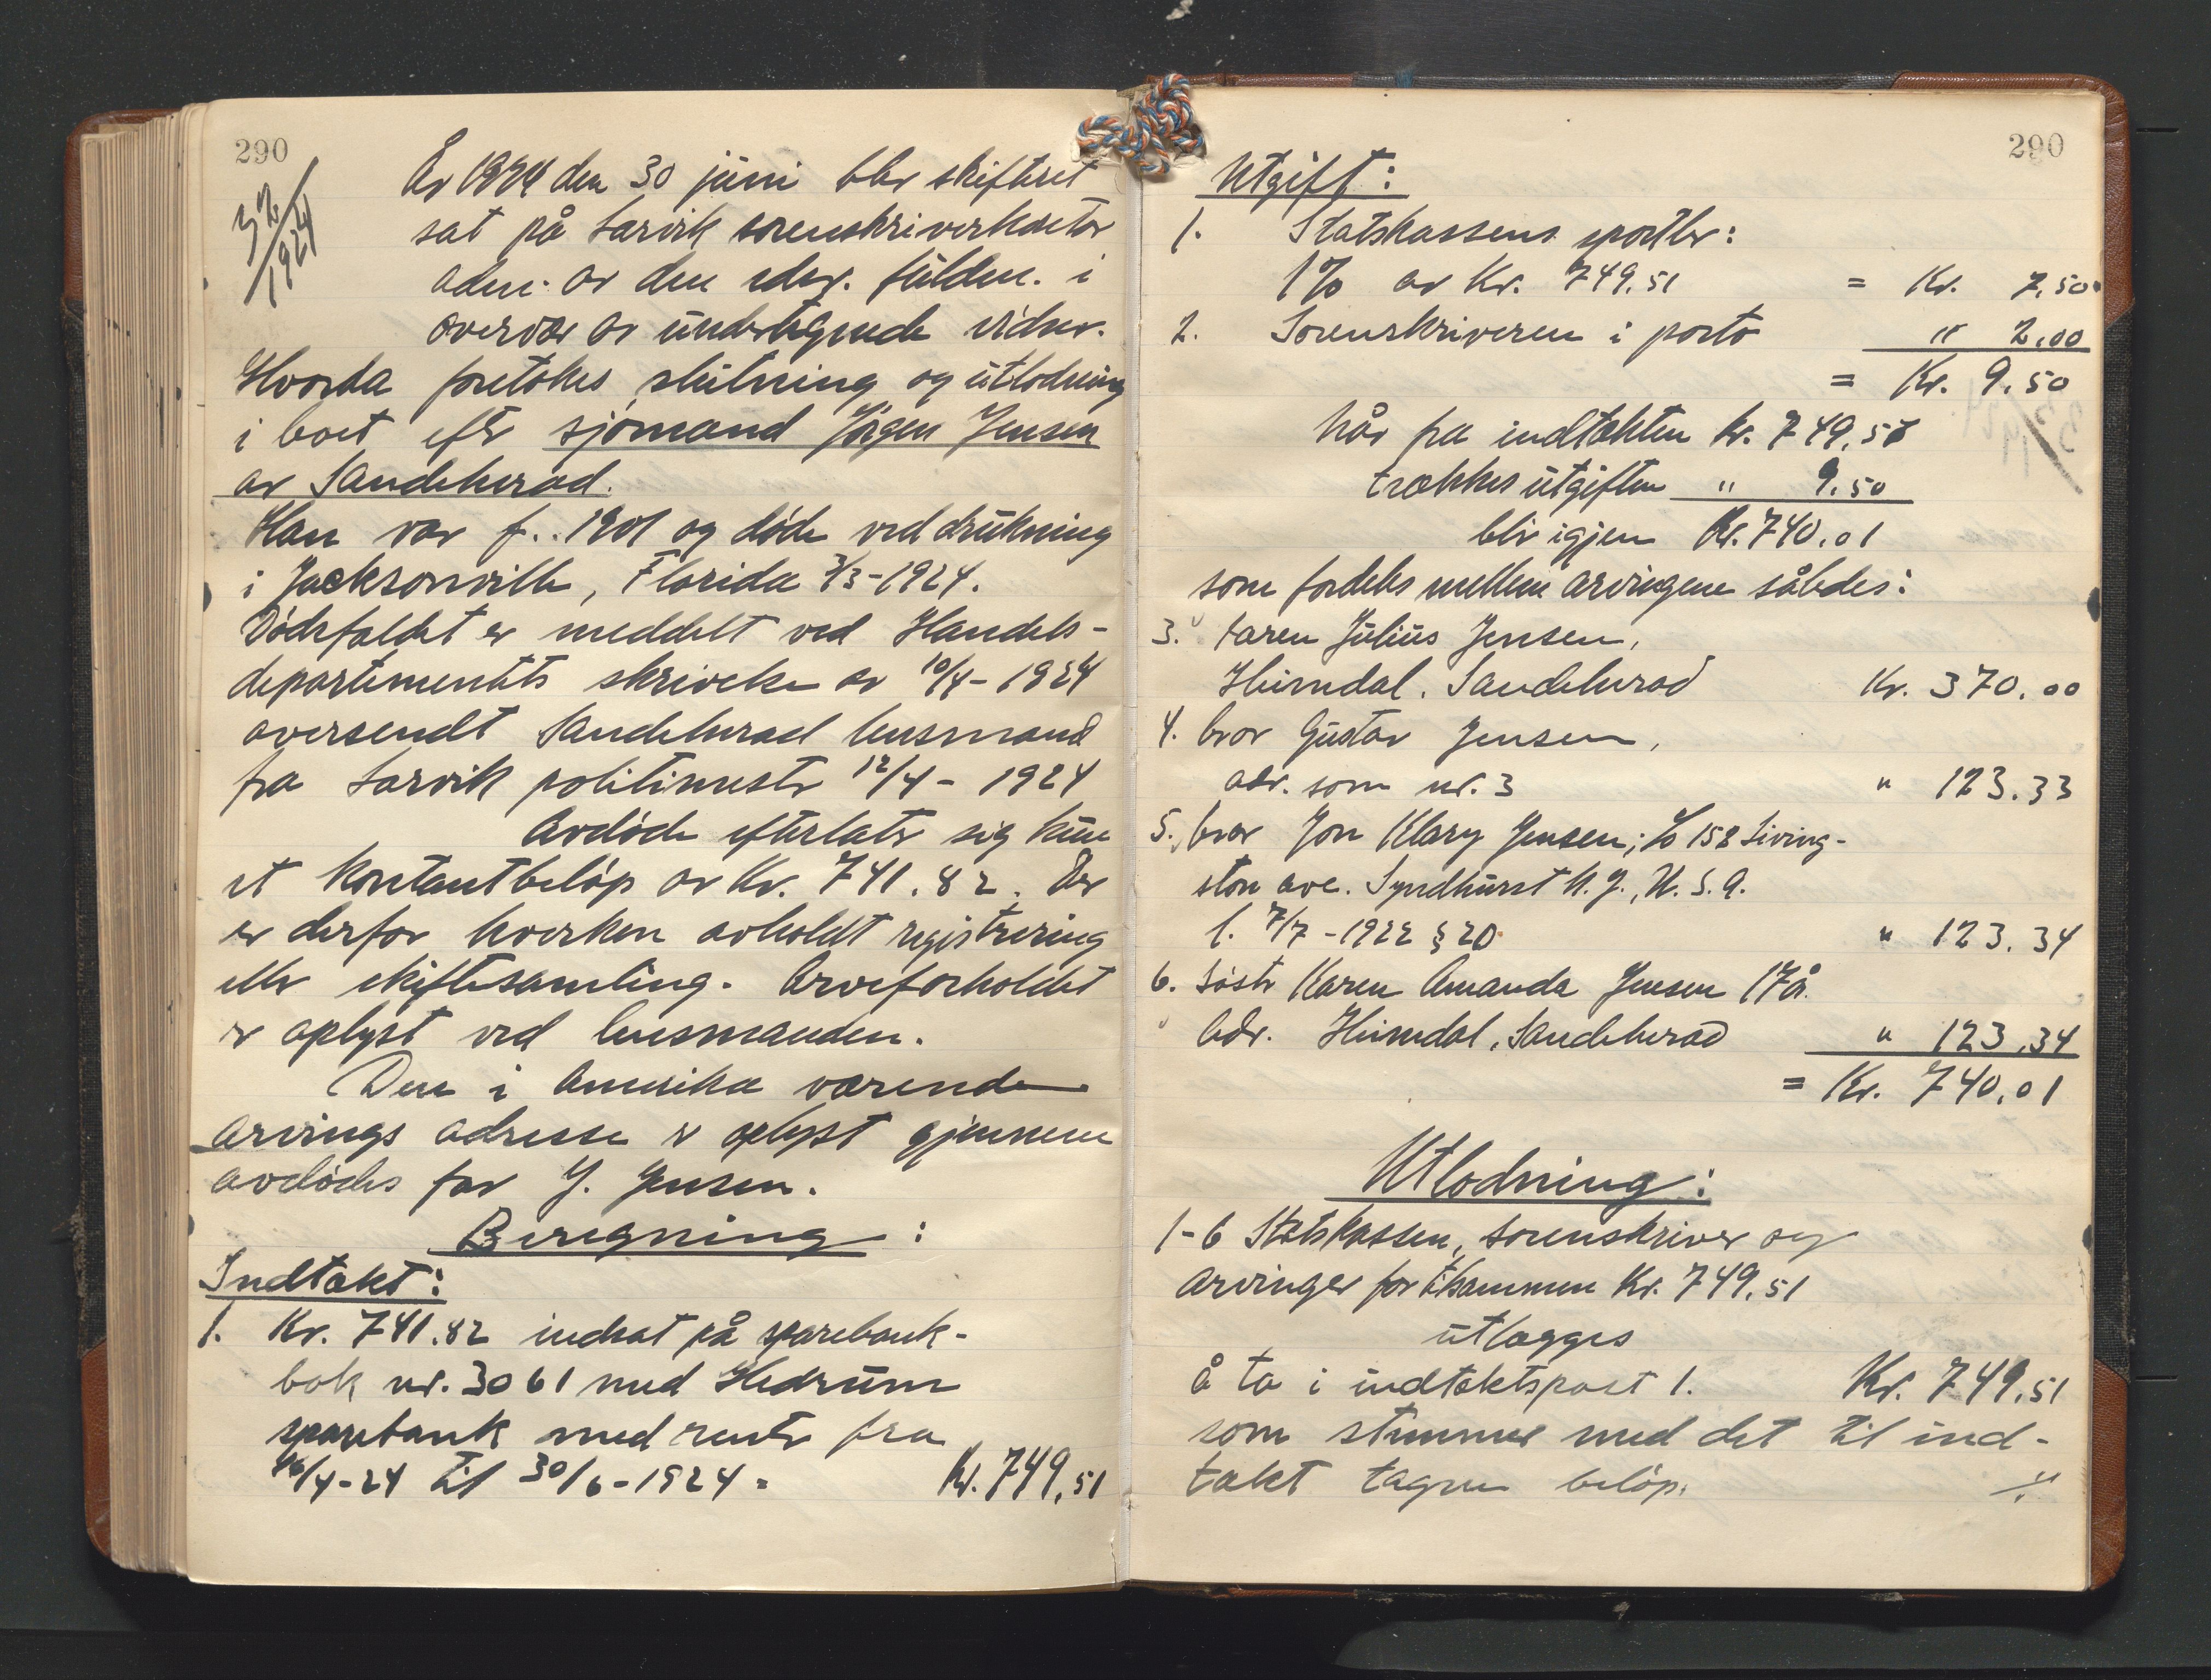 290
30/6
1924
År 1924 den 30 juni blev skifteret
sat på Larvik sorenskriverkontor
adm. av den edsv. fuldm. i
overvær av undertegnede vidner.
Hvorda foretokes slutning og utlodning
i boet efter sjømand Jørgen Jensen
av Sandeherad.
Han var f. 1901 og døde ved drukning
i Jacksonville, Florida 3/3-1924.
Dødsfaldet er meddelt ved Handels-
departementets skrivelse av 10/4-1924
oversendt Sandeherad lensmand
fra Larvik politimester 12/4-1924
Avdøde efterlater sig kun
et kontantbeløp av Kr. 741.82. Der
er derfor hverken avholdt registrering
eller skiftesamling. Arveforholdet
er oplyst ved lensmanden.
Den i Amerika værende
arvings adresse er oplyst gjennem
avdødes far J. Jensen.
Beregning:
Indtækt:
1. Kr. 741.82 indsat på sparebank-
bok nr. 3061 med Hedrum
sparebank med renter fra
16/4-24 til 30/6-1924 = Kr. 749,51
290
Utgift:
1. Statskassens sportler:
1% av Kr. 749.51 = Kr. 7,50
2. Sorenskriveren i porto " 2,00
= Kr. 9.50
Når fra indtækten Kr. 749,51
trækkes utgiften " 9.50
blir igjen Kr. 740.01
som fordeles mellem arvingene således:
3. Faren Julius Jensen,
Heimdal, Sandeherad Kr. 370.00
4. bror Gustav Jensen,
adr. som nr. 3 " 123.33
5. bror Jon Klary Jensen; c/o 158 Living-
ston ave. Lyndhurst N. J., U. S. A.
l. 7/7-1922 § 20 " 123.34
6. Søster Karen Amanda Jensen 17 år.
Adr. Heimdal, Sandeherad " 123.34
= Kr. 740,01
Utlodning:
1-6 Statskassen, sorenskriver og
arvinger for tilsammen Kr. 749,51
utlægges
å ta i indtæktspost 1. Kr. 749,51
som stemmer med det til ind-
tækt tagne beløp.